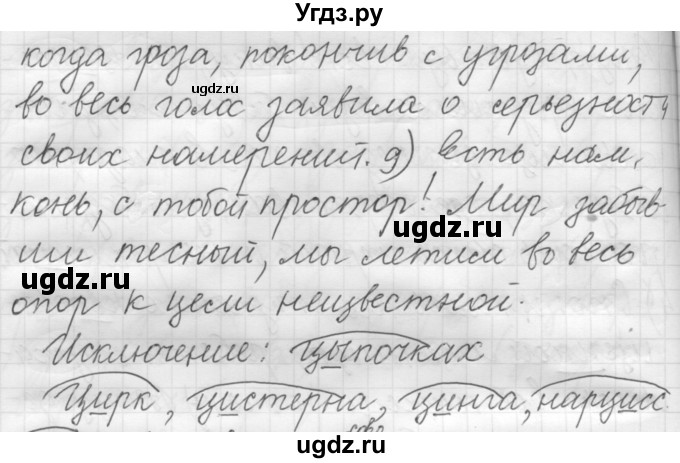 Угдз.ру
когда гроза, покончив с угрозами,
ugdz.ru
во весь голос заявила о серьезности
своих намерений. 9) Есть нам,
конь, с тобой простор! Мир забыв-
ши тесный, мы летим во весь
ugdz.ru ugdz.ru
опор к цели неизвестной.
Исключение: цыпочках
Цирк, цистерна, цинга, нарцисс
ugdz.ru